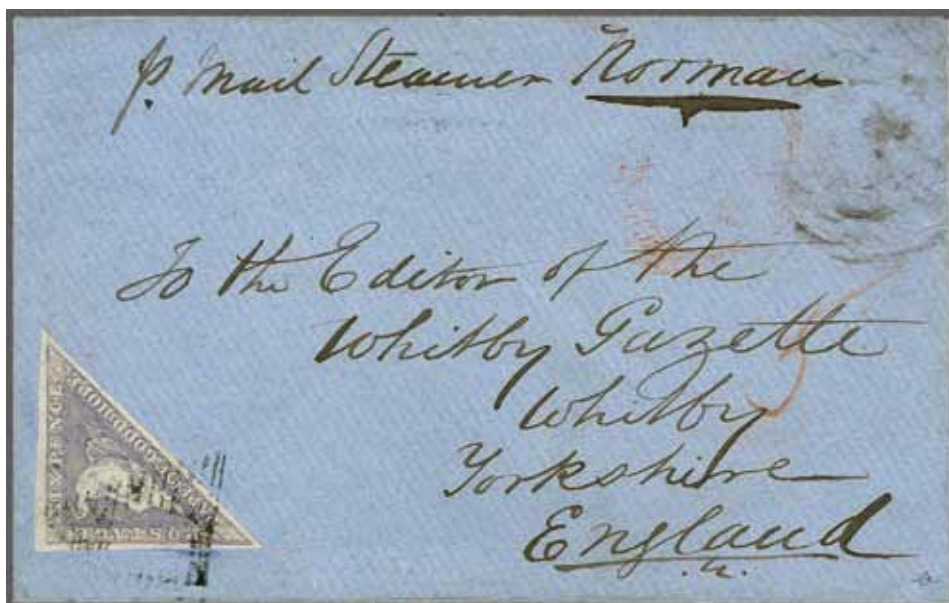 p. Mail Steamer Norman
To the Editor of the
Whitby Gazette
Whitby
Yorkshire
England
SIX PENCE
POSTAGE